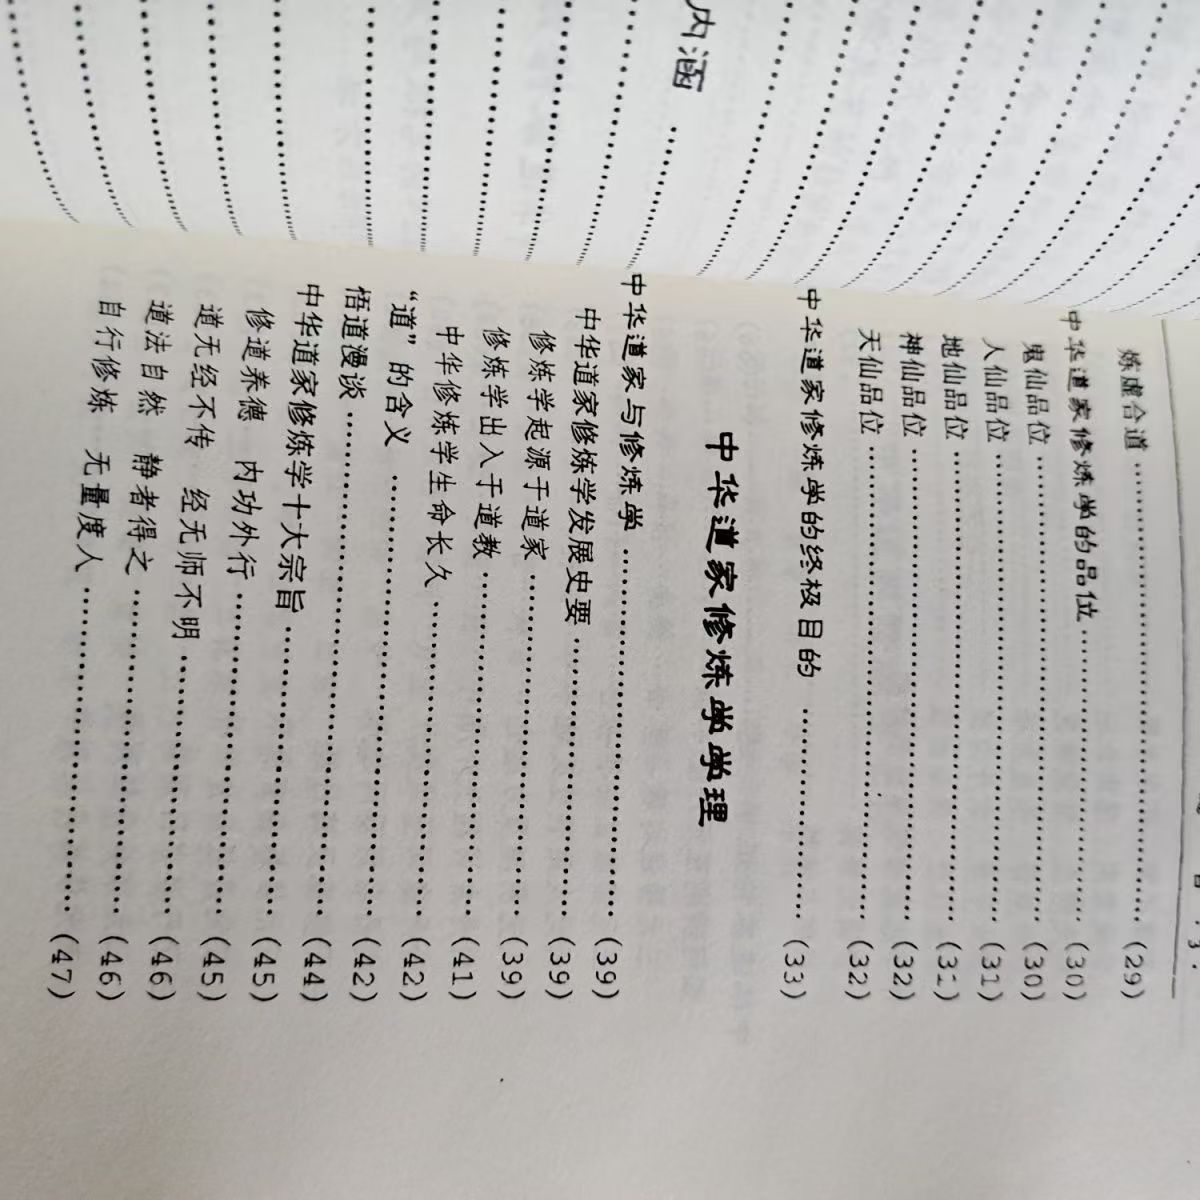 内涵 ……
· 3 ·
炼虚合道 …… (29)
中华道家修炼学的品位 …… (30)
鬼仙品位 …… (30)
人仙品位 …… (31)
地仙品位 …… (31)
神仙品位 …… (32)
天仙品位 …… (32)
中华道家修炼学的终极目的 …… (33)
中华道家修炼学学理
中华道家与修炼学 …… (39)
中华道家修炼学发展史要 …… (39)
修炼学起源于道家 …… (39)
修炼学出入于道教 …… (41)
中华修炼学生命长久 …… (42)
“道”的含义 …… (42)
悟道漫谈 …… (44)
中华道家修炼学十大宗旨 …… (45)
修道养德　内功外行 …… (45)
道无经不传　经无师不明 …… (46)
道法自然　静者得之 …… (46)
自行修炼　无量度人 …… (47)